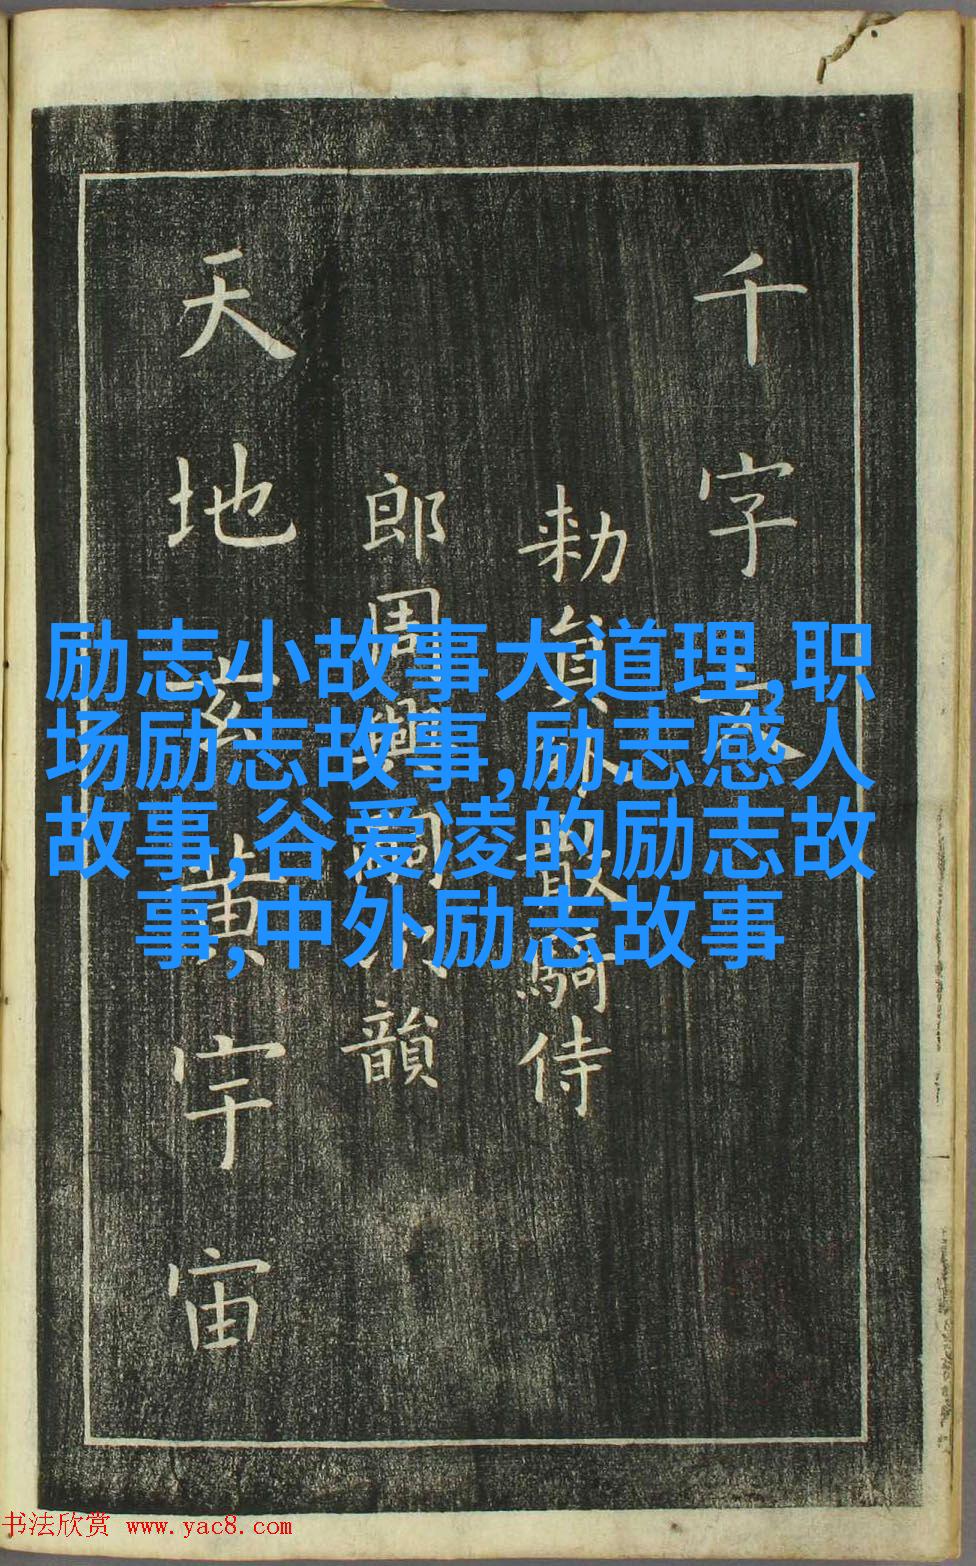 千字文
勅員外散騎侍
郎周興嗣次韻
天地玄黃宇宙
励志小故事大道理,职
场励志故事,励志感人
故事,谷爱凌的励志故
事,中外励志故事
书法欣赏 www.yac8.com